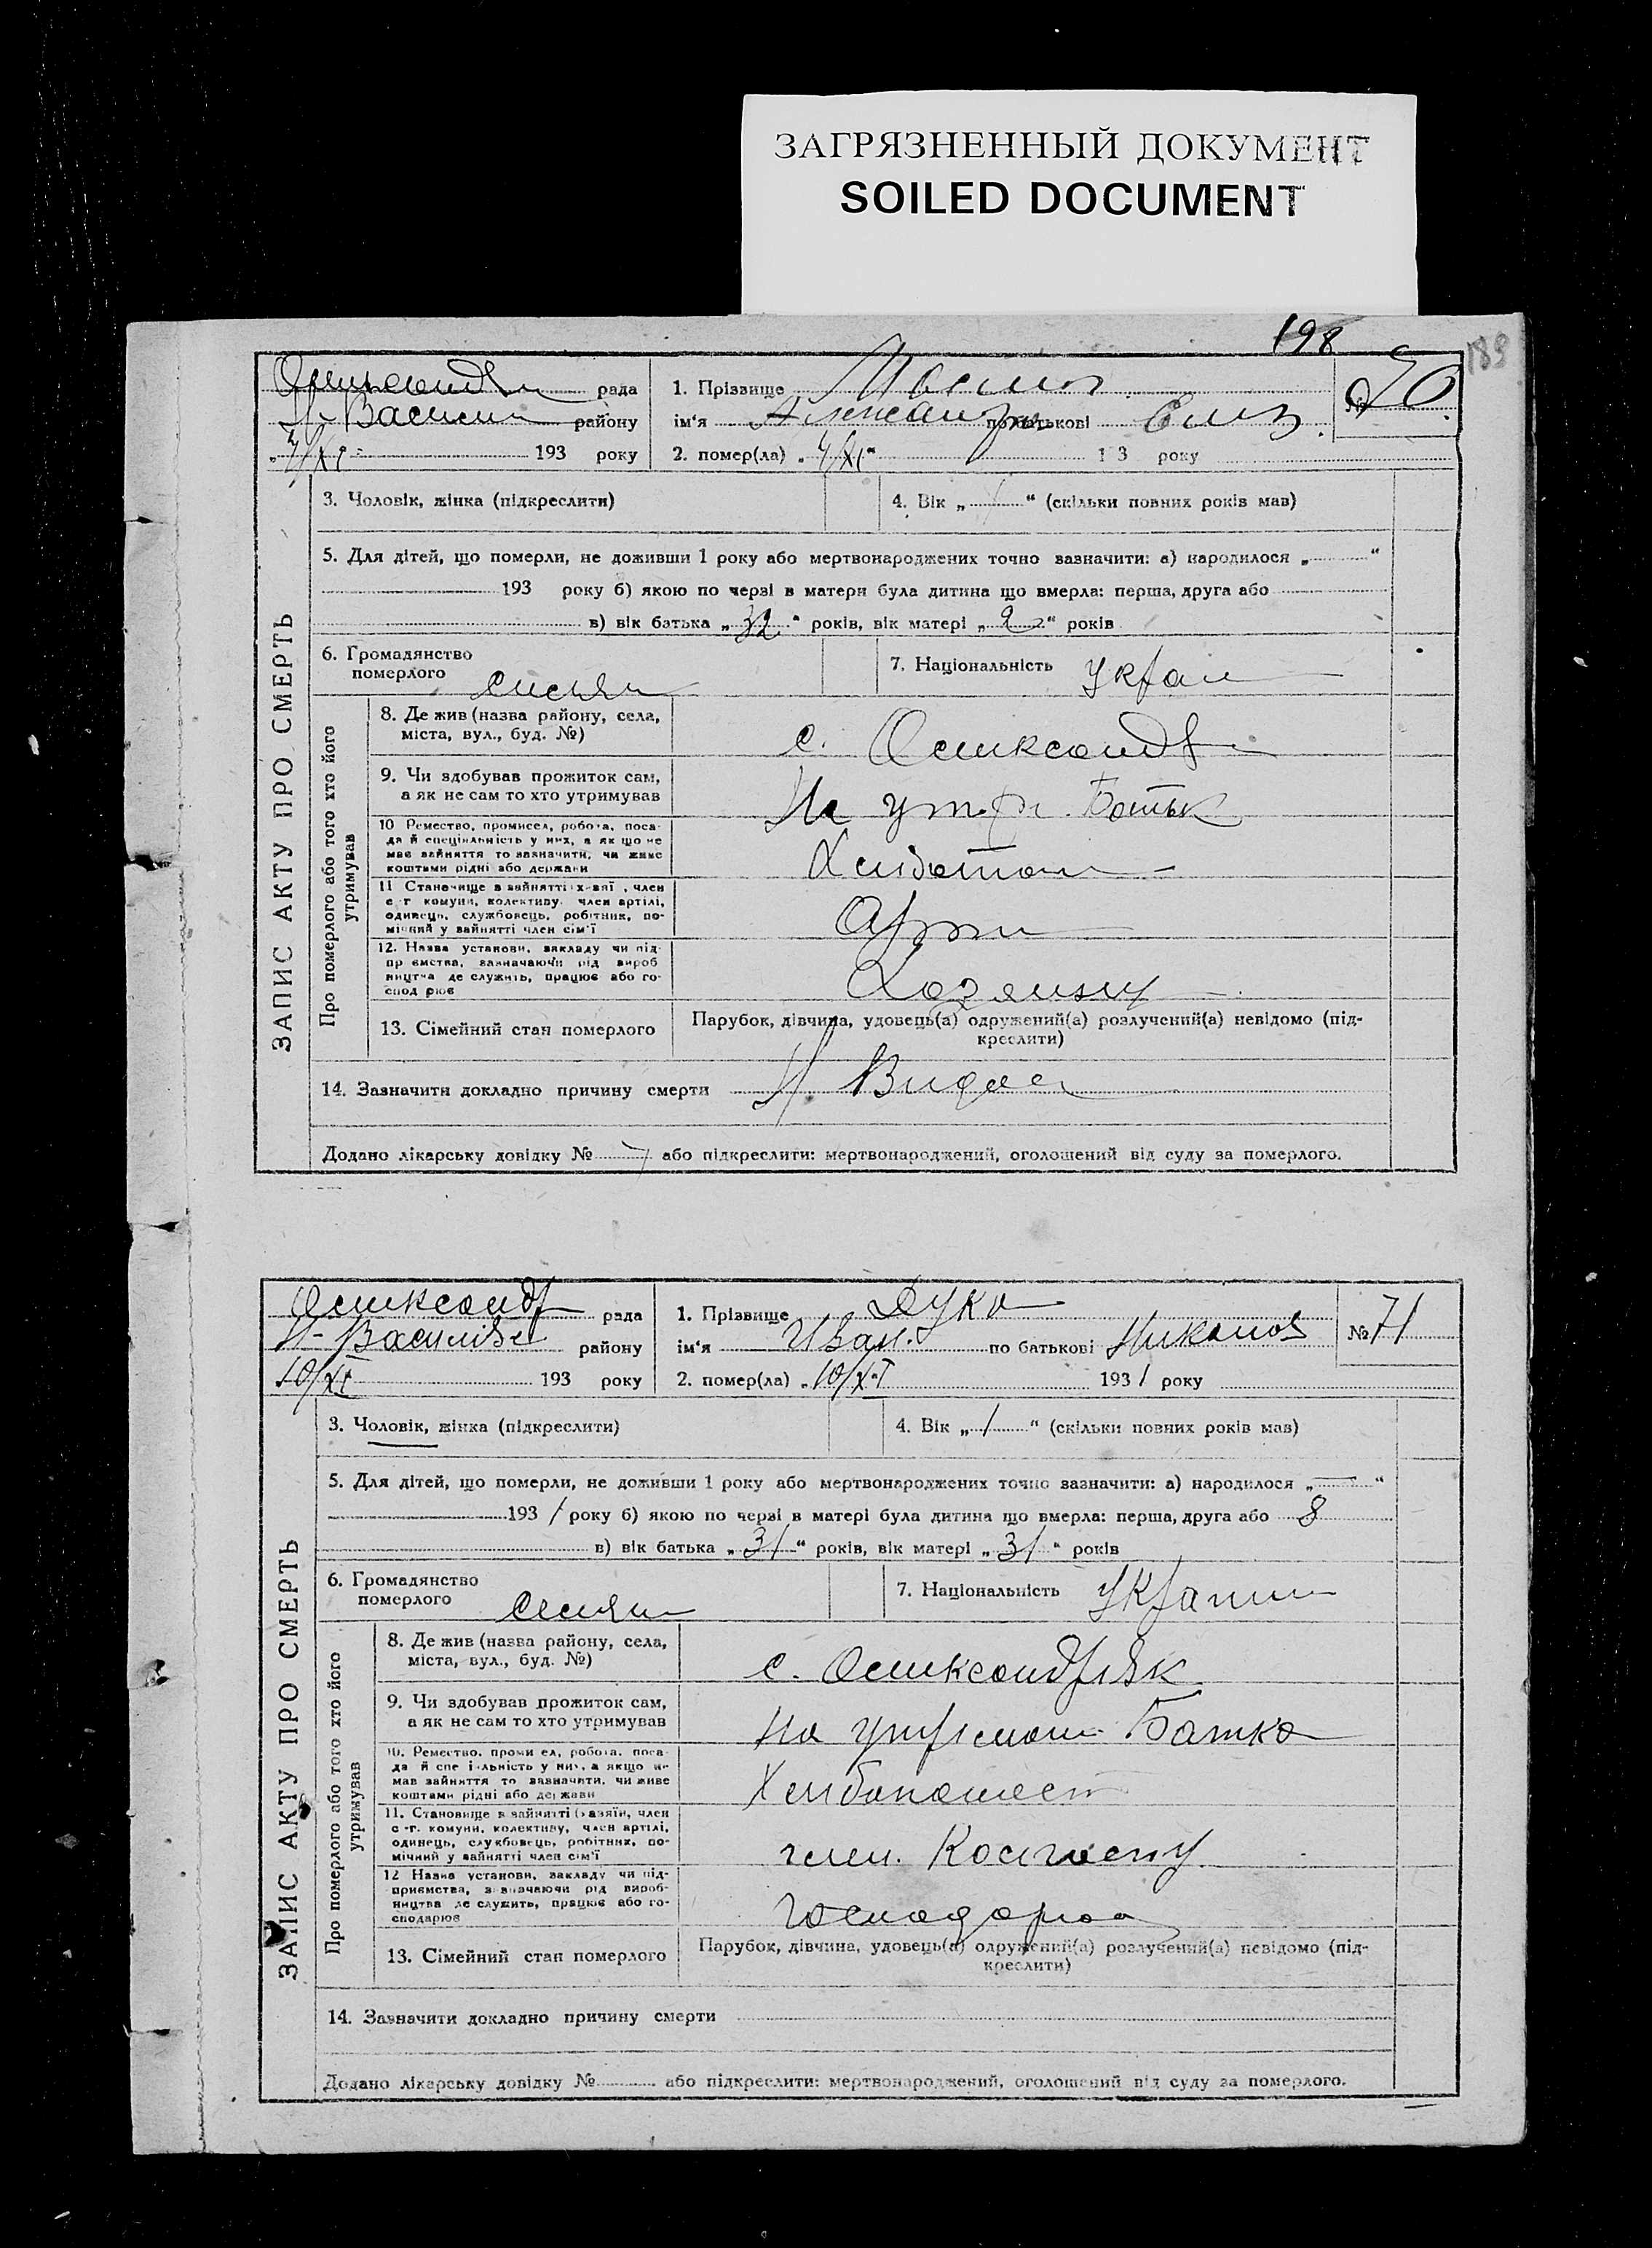 ЗАГРЯЗНЕННЫЙ ДОКУМЕНТ
SOILED DOCUMENT
198
189
рада
району
193 року
1. Прізвище
ім'я по батькові
2. помер(ла) 4/XI 193 року
№ 70
ЗАПИС АКТУ ПРО СМЕРТЬ
3. Чоловік, жінка (підкреслити)
4. Вік „ “ (скільки повних років мав)
5. Для дітей, що померли, не доживши 1 року або мертвонароджених точно зазначити: а) народилося „ “
193 року б) якою по черзі в матери була дитина що вмерла: перша, друга або
в) вік батька „32“ років, вік матері „ “ років
6. Громадянство
померлого селян
7. Національність Украї
Про померлого або того хто його
утримував
8. Де жив (назва району, села,
міста, вул., буд. №)
с. Олександ
9. Чи здобував прожиток сам,
а як не сам то хто утримував
На утр. Батьк
10 Ремество, промисел, робота, поса-
да й спеціяльність у них, а як що не
має зайняття то зазначити, чи живе
коштами рідні або держави
11 Становище в зайнятті х-зяї, член
с-г комуни, колективу, член артілі,
одинець, службовець, робітник, по-
мічний у зайнятті член сім'ї
12. Назва установи, закладу чи під-
пр ємства, зазначаючи рід вироб
ництва де служить, працює або го-
спод рює
13. Сімейний стан померлого
Парубок, дівчина, удовець(а) одружений(а) розлучений(а) невідомо (під-
креслити)
14. Зазначити докладно причину смерти
Додано лікарську довідку № або підкреслити: мертвонароджений, оголошений від суду за померлого.
Олександ рада
Н-Василів району
10/XI 193 року
1. Прізвище Дука
ім'я Иван. по батькові Никанов
2. помер(ла) „10/XI 1931 року
№ 71
ЗАПИС АКТУ ПРО СМЕРТЬ
3. Чоловік, жінка (підкреслити)
4. Вік „1“ (скільки повних років мав)
5. Для дітей, що померли, не доживши 1 року або мертвонароджених точно зазначити: а) народилося „—“
1931 року б) якою по черзі в матері була дитина що вмерла: перша, друга або 8
в) вік батька „31“ років, вік матері „31“ років
6. Громадянство
померлого селян
7. Національність Україн
Про померлого або того хто його
утримував
8. Де жив (назва району, села,
міста, вул., буд. №)
с. Олександрівк
9. Чи здобував прожиток сам,
а як не сам то хто утримував
На утриман Батка
10. Ремество, проми ел, робота, поса-
да й спе і-льність у них, а якщо не
мав зайняття то зазначити, чи живе
коштами рідні або держави
Хлибопашест
11. Становище в зайнятті (хазяїн, член
с-г. комуни, колективу, член артілі,
одинець, службовець, робітник, по-
мічний у зайнятті член сім'ї
член.
12 Назва установи, закладу чи під-
приємства, зазначаючи рід вироб-
ництва де служить, працює або го-
сподарює
13. Сімейний стан померлого
Парубок, дівчина, удовець(а) одружений(а) розлучений(а) невідомо (під-
креслити)
14. Зазначити докладно причину смерти
Додано лікарську довідку № або підкреслити: мертвонароджений, оголошений від суду за померлого.